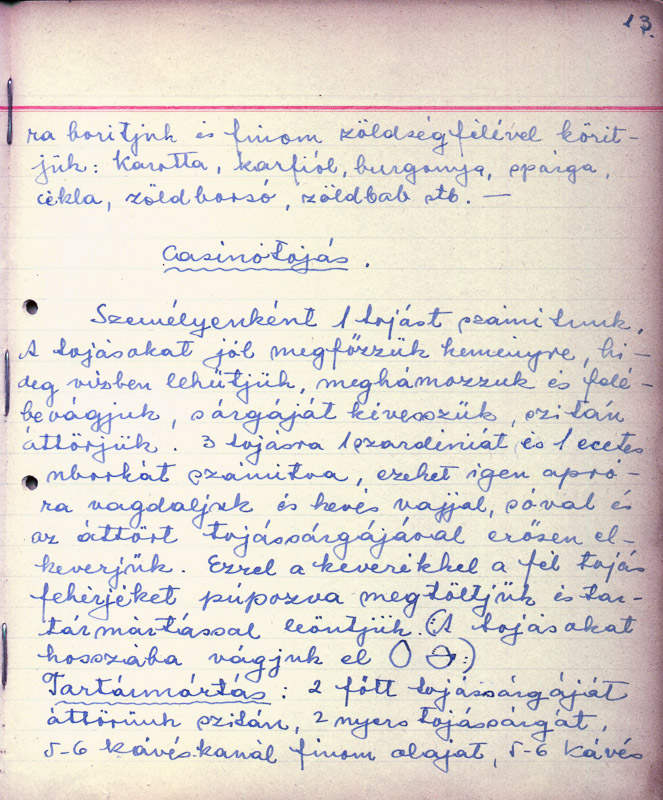 13.
ra boritjuk és finom zöldségfélével körit-
jük: karotta, karfiól, burgonya, spárga,
cékla, zöldborsó, zöldbab stb. —
Casinótojás.
Személyenként 1 tojást számitunk,
A tojásokat jól megfőzzük keményre, hi-
deg vizben lehűtjük, meghámozzuk és felé-
bevágjuk, sárgáját kivesszük, szitán
áttörjük. 3 tojásra 1 szardiniát és 1 ecetes
uborkát számitva, ezeket igen apró-
ra vagdaljuk és kevés vajjal, sóval és
az áttört tojássárgájával erősen el-
keverjük. Ezzel a keverékkel a fél tojás
fehérjéket púpozva megtöltjük és tar-
tármártással leöntjük. (: A tojásokat
hosszába vágjuk el :)
Tartármártás: 2 főtt tojássárgáját
áttörünk szitán, 2 nyers tojássárgát,
5-6 kávéskanál finom olajat, 5-6 kávés